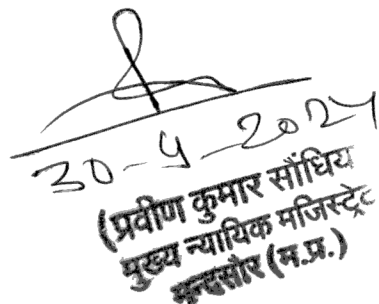 30-4-2024
(प्रवीण कुमार सौंधिय
मुख्य न्यायिक मजिस्ट्रेट
मन्दसौर (म.प्र.)